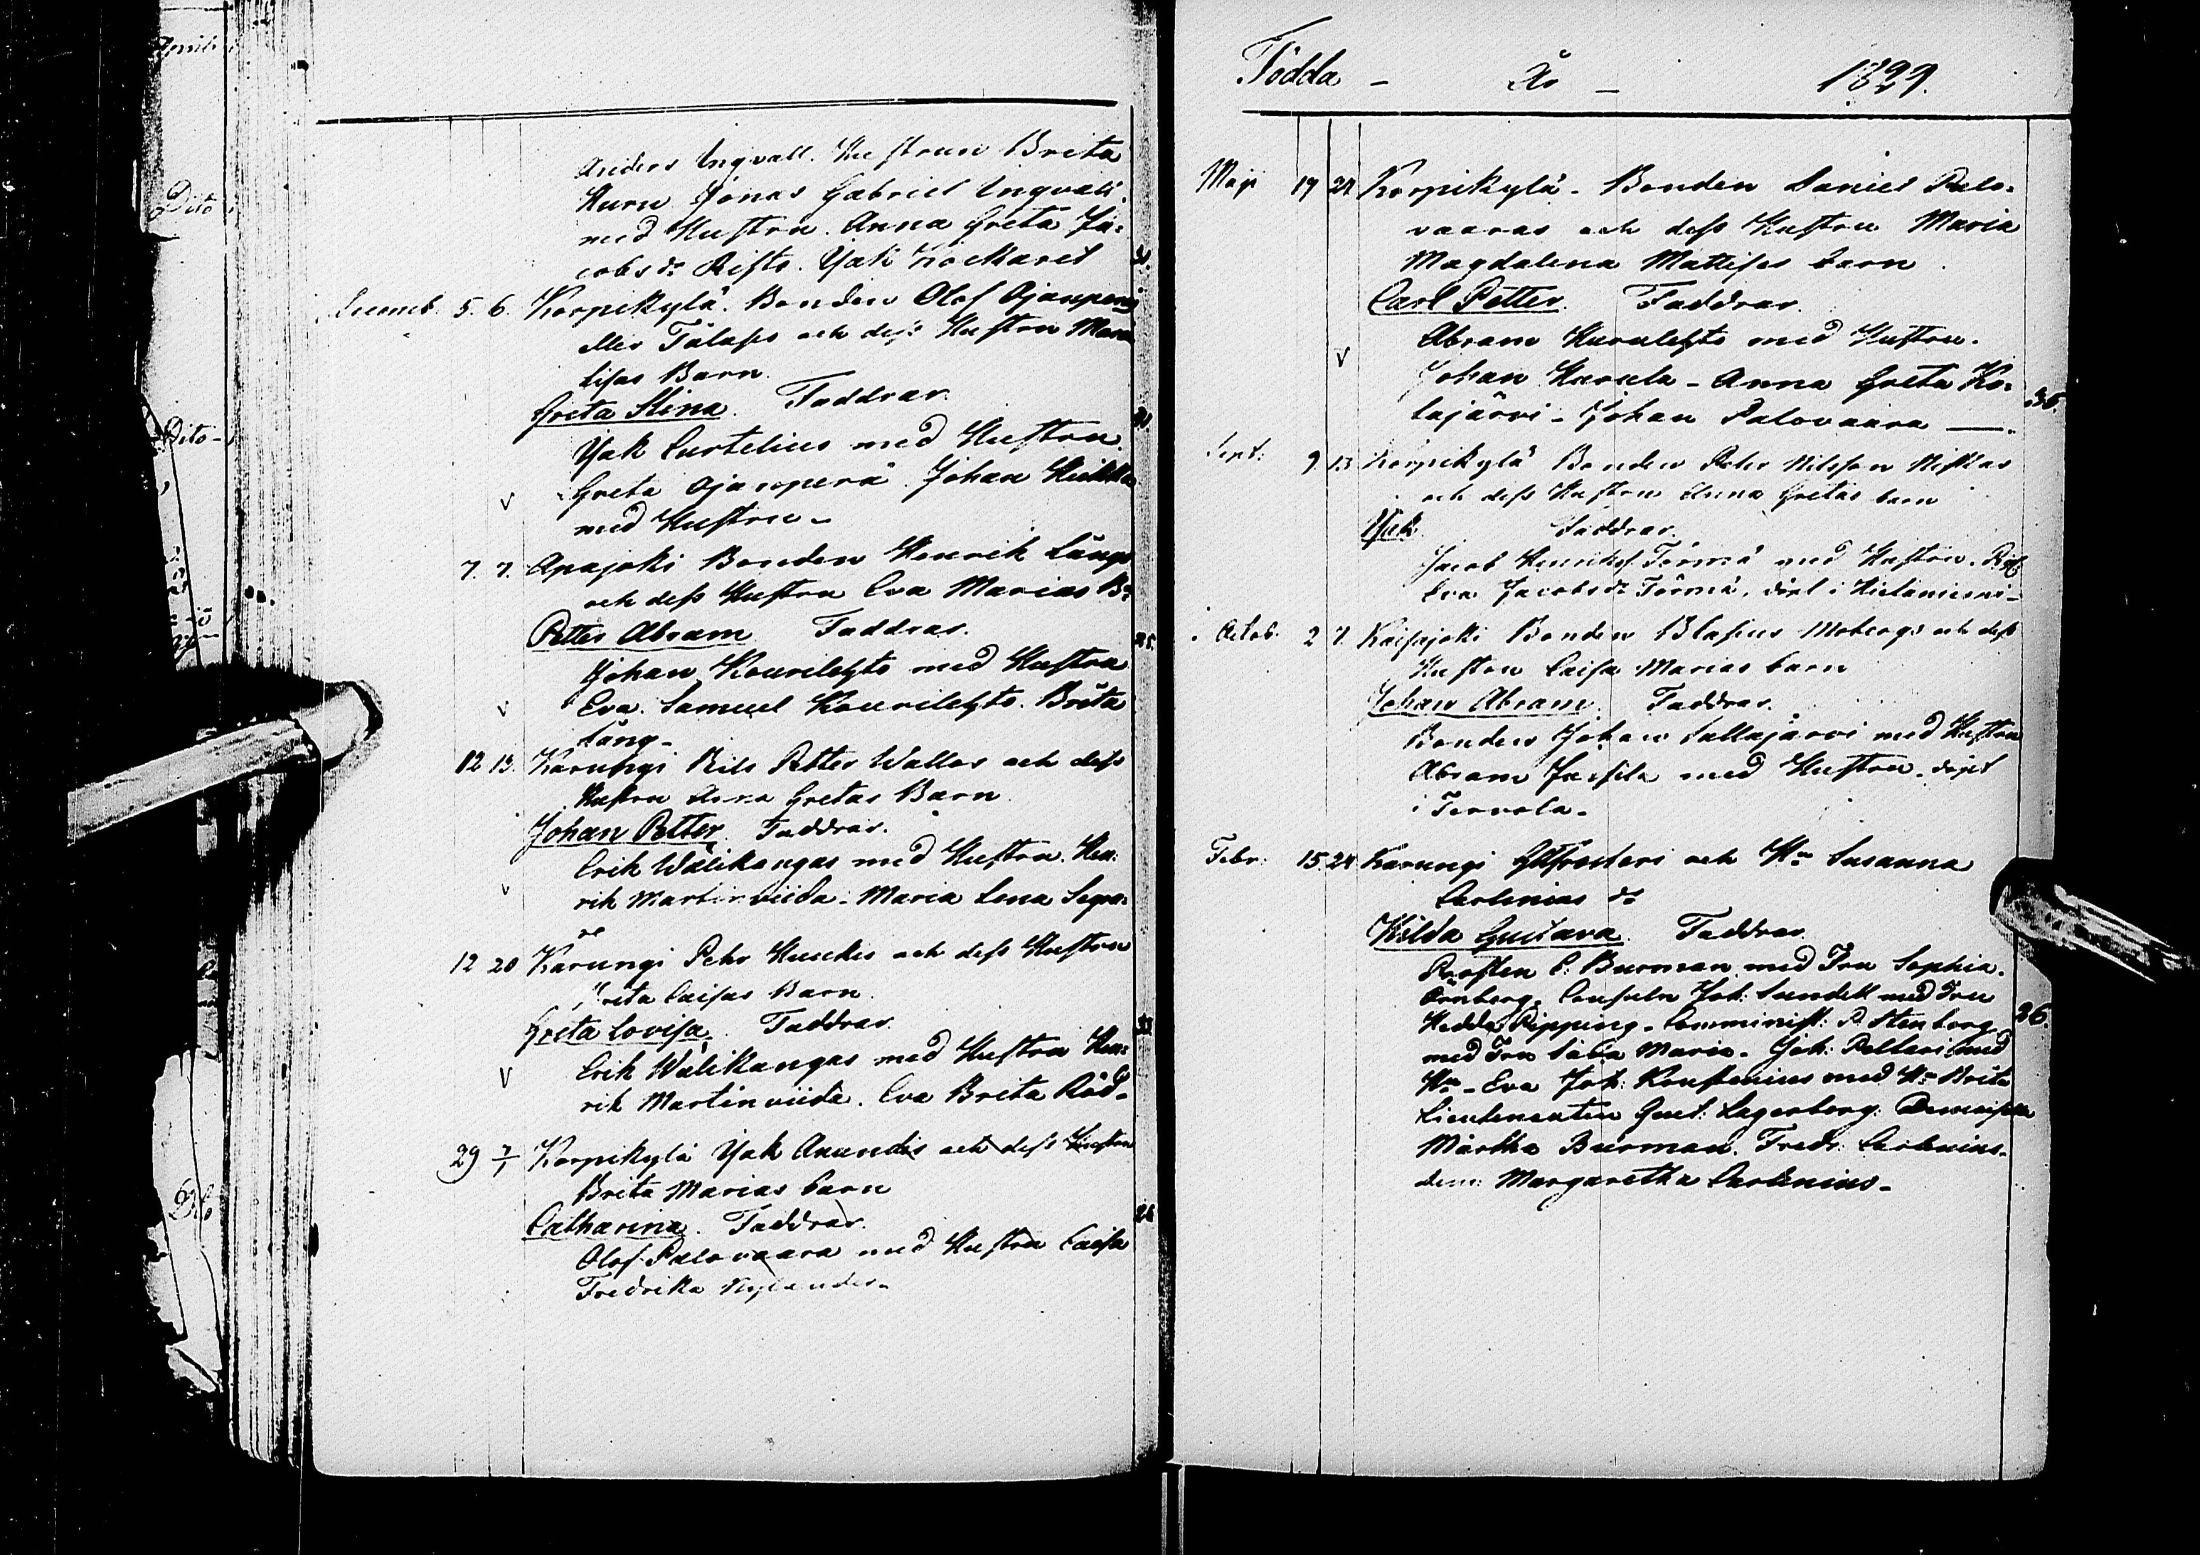 Anders Ingvall. Hustrun Brita
Kuru Jonas Gabriel Ingvall
med Hustru. Anna Greta Ja-
cobsdr Risto. Isak
Decemb. 5. 6. Korpikylä. Bonden Olof Ojanperä
eller och dess Hustru Maria
Lisas Barn.
Greta Stina. Faddrar
Isak Curtelius med Hustru
Greta Ojanperä. Johan
V med Hustru-
7. 7. Apajoki Bonden Henrik Långs
och dess Hustru Eva Marias Bn
Petter Abram Faddrar.
Johan Kourilehto med Hustru
V Eva. Samuel Kourilehto. Brita
Lång-
12 13. Karungi Nils Petter Wallas och dess
Hustru Anna Gretas Barn
Johan Petter. Faddrar.
Erik Wälikangas med Hustru. Hen-
V rik Martinviida. Maria Lena
12 20 Karungi Pehr och dess Hustru
Greta Caisas Barn.
Greta Lovisa. Faddrar
Erik Wälikangas med Hustru Hen-
V rik Martinviida. Eva Brita Röd-
29 7/1 Korpikylä Isak och dess Hustru
Brita Marias barn
Catharina. Faddrar.
Olof Palovaara med Hustru Caisa
Fredrika Nylander-
Födda - År - 1829.
Maji 19 24 Korpikylä. Bonden Daniel Palo-
vaaras och dess Hustru Maria
Magdalena Mattises barn.
Carl Petter. Faddrar.
Abram med Hustru.
V Johan - Anna Greta Ko-
lajärvi - Johan Palovaara —.
35.
Sept: 9 13 Korpikylä Bonden Pehr Nilsson Niskas
och dess Hustru Anna Gretas barn
Isak Faddrar.
Jacob Henriks. Törmä med Hustru. Pig.
Eva Jacobsdr Törmä, döpt i Hietaniemi-
Octob. 2 7. Kaisajoki Bonden Blasius Mobergs och dess
Hustru Caisa Marias barn
Johan Abram. Faddrar.
Bonden Johan Sallajärvi med Hustru
Abram med Hustru. döpt
i Tervola-
Febr: 15. 24 Karungi och Hu Susanna
Carlenius dr
Hilda Gustava. Faddrar
Prosten C. Burman med Fru Sophia
Örnberg. Consuln Joh: Sundell med Fru
Hedda Pipping. Comminist: P. Stenborg
36.
med Fru Maria. Joh: med
Hu. Eva Joh: med Hu Brita
Lieutenanten Gust: Lagerborg.
Märtha Burman. Fredr: Carlenius.
dem: Margaretha Carlenius-